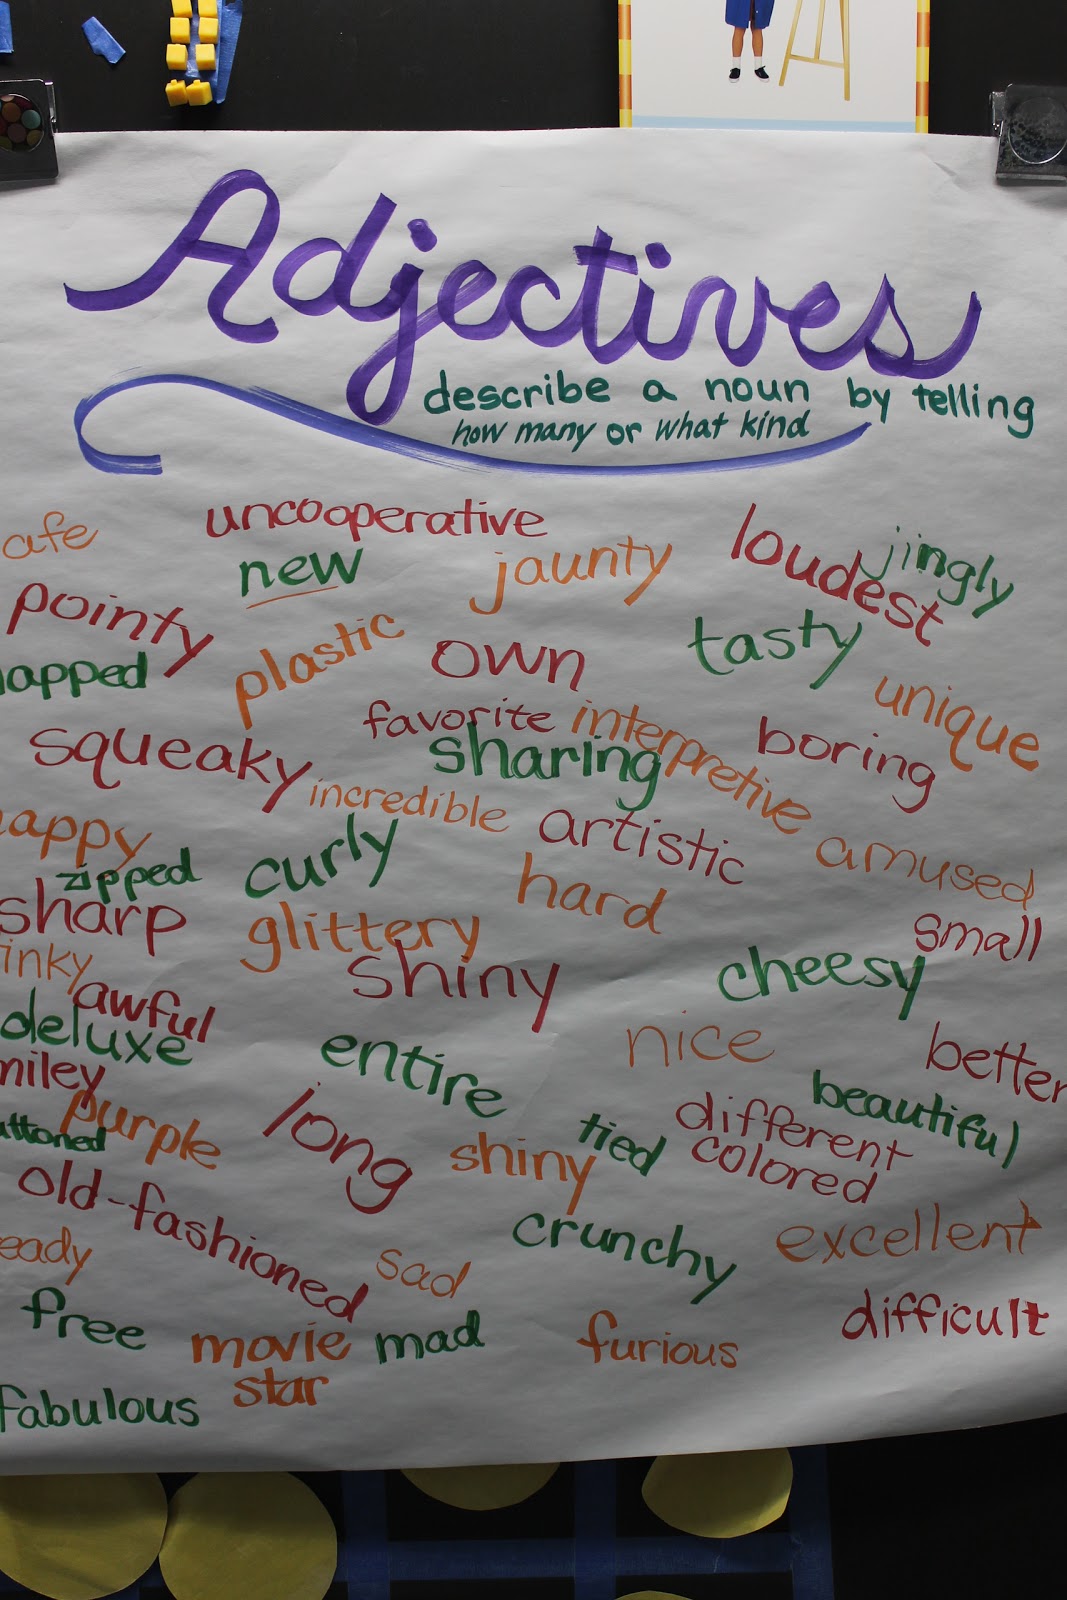 Adjectives
describe a noun by telling
how many or what kind
afe
uncooperative
new
jaunty
loudest
jingly
pointy
plastic
own
tasty
unique
apped
squeaky
favorite
sharing
interpretive
boring
incredible
appy
zipped
curly
artistic
hard
amused
sharp
glittery
shiny
small
inky
cheesy
awful
deluxe
entire
nice
better
miley
purple
uttoned
long
shiny
tied
different
colored
beautiful
old-fashioned
eady
sad
crunchy
excellent
free
movie
star
mad
furious
difficult
fabulous